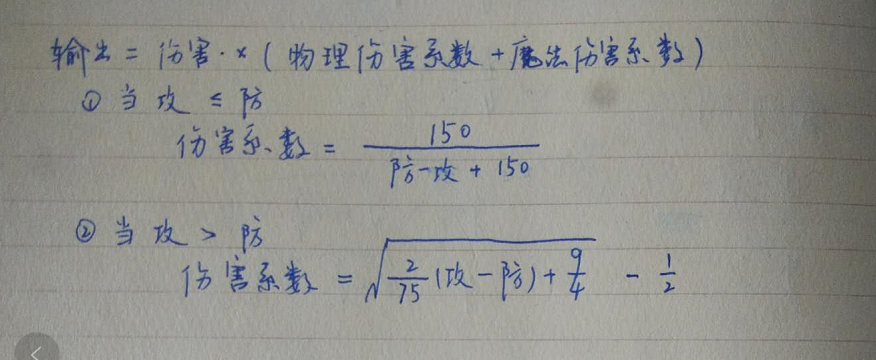 输出 = 伤害·×(物理伤害系数+魔法伤害系数)
① 当攻 ≤ 防
伤害系数 = 150/(防-攻+150)
② 当攻 > 防
伤害系数 = √(2/75(攻-防)+9/4) - 1/2